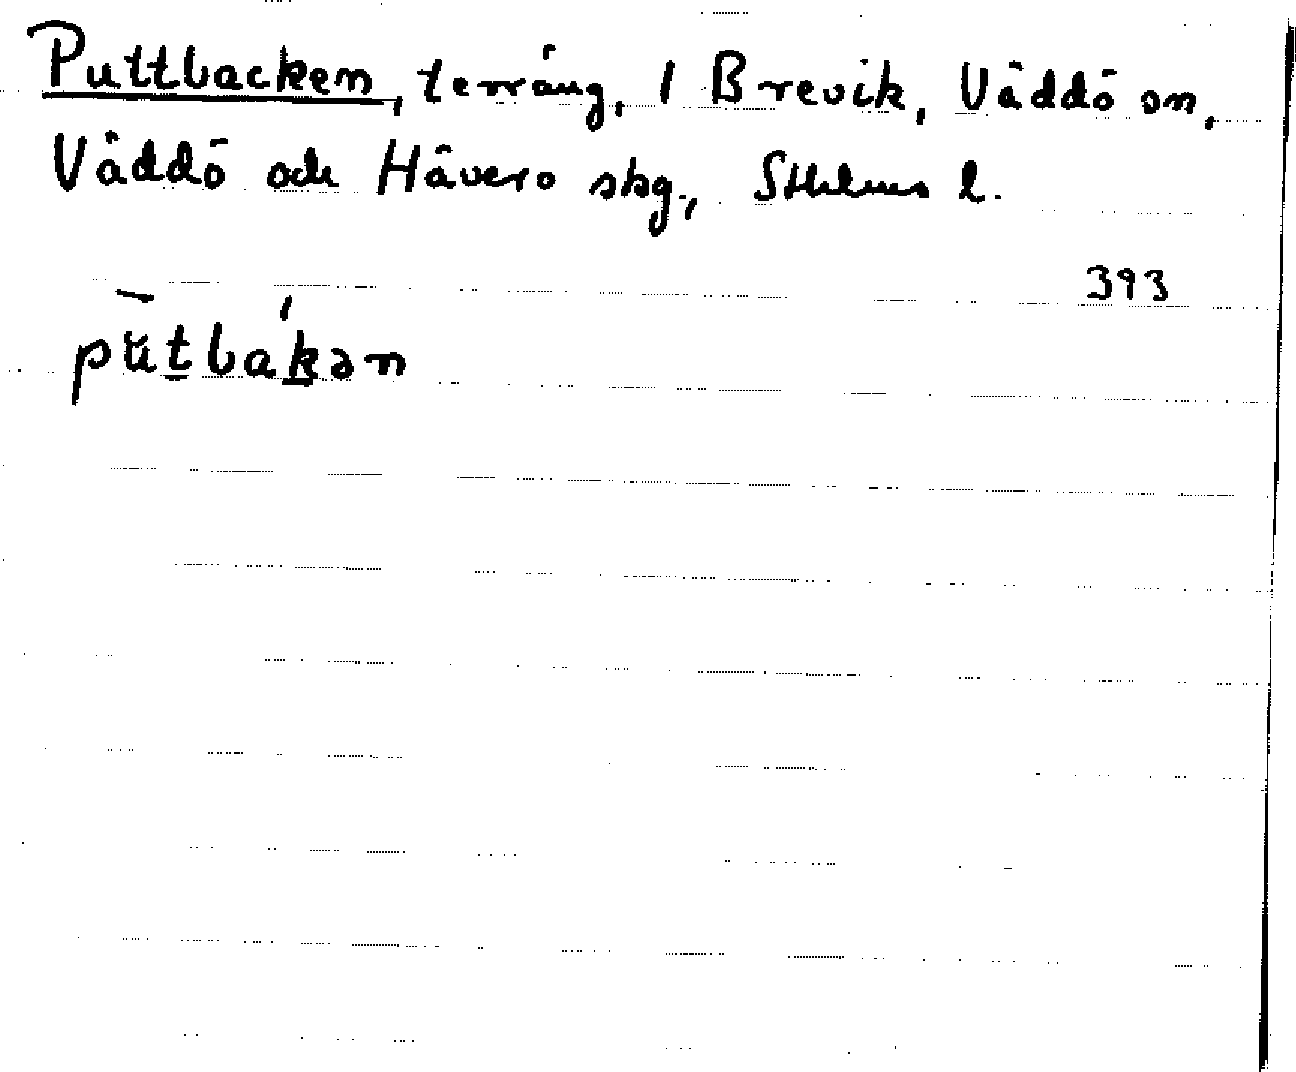 Puttbacken, terräng, 1 Brevik, Väddö sn,
Väddö och Hävero skg., Sthlms l.
393
pu̇tbakən